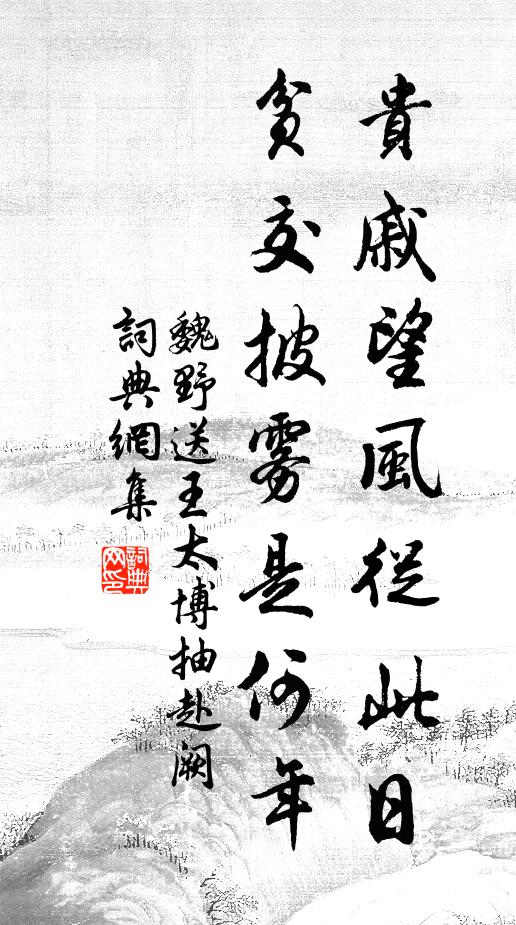 貴戚望風從此日
貧交披霧是何年
魏野送王太博抽赴闕
詞典網集
詞典
网印